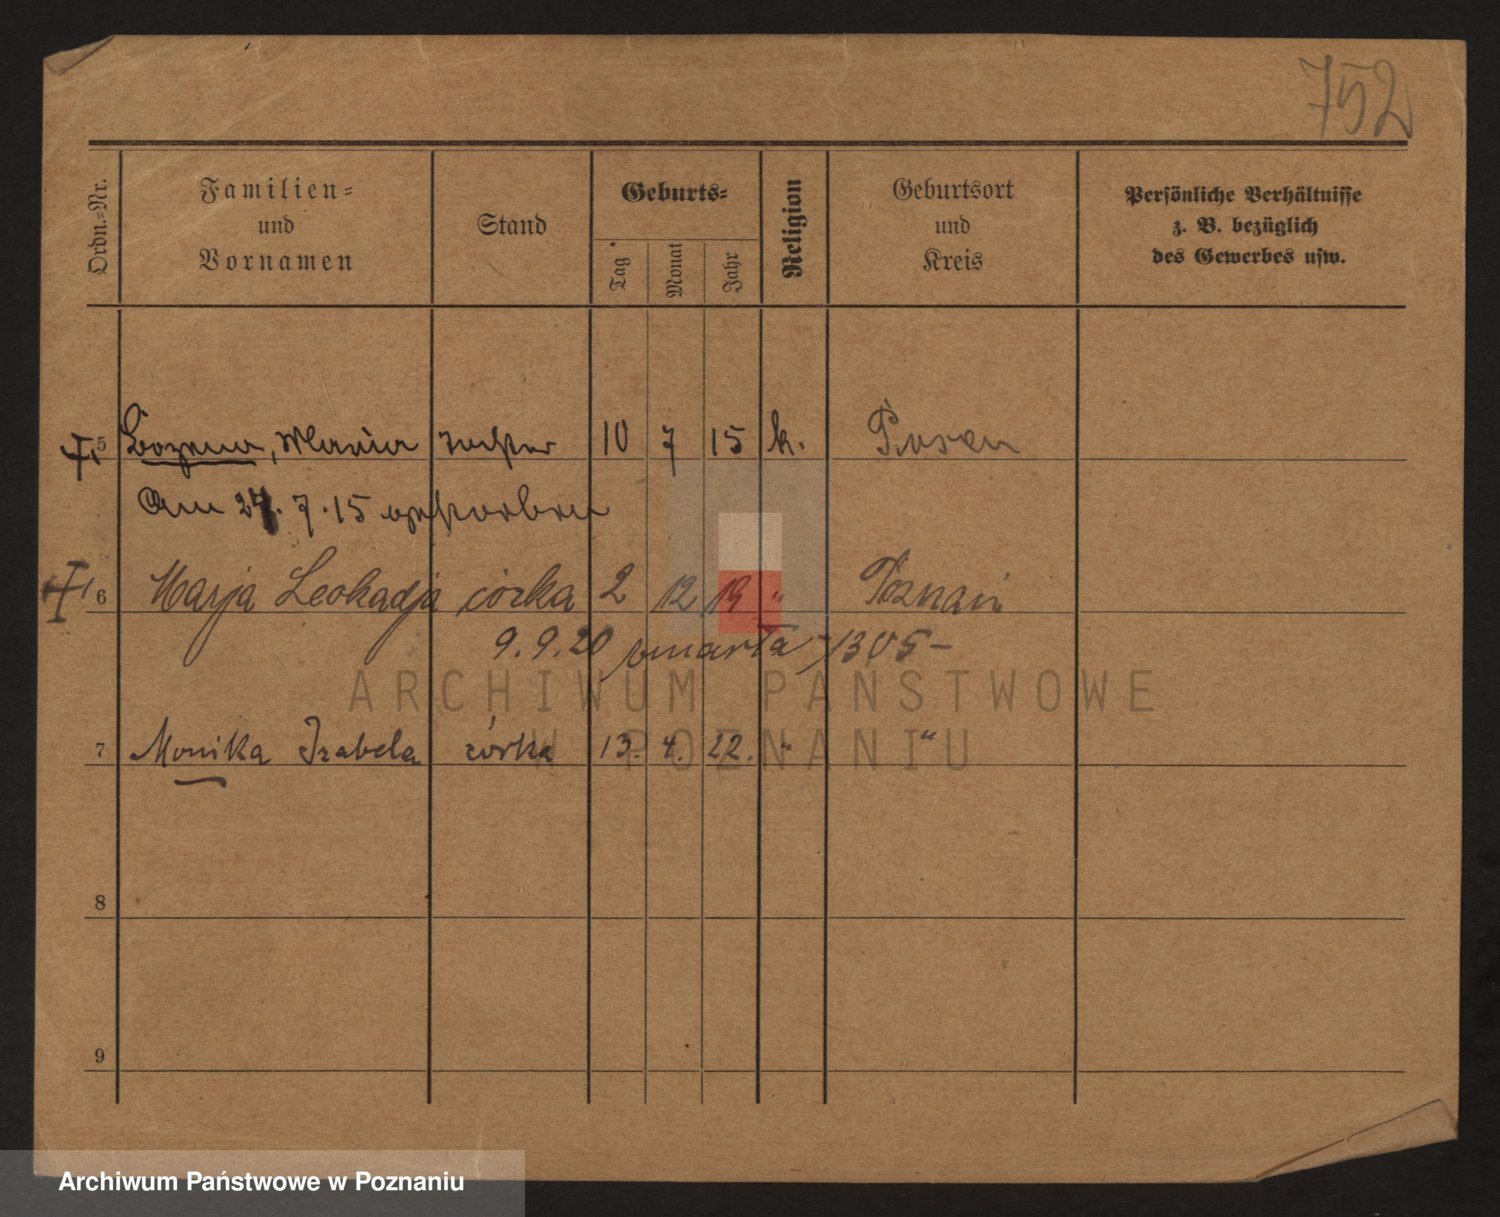 752
Ordn.-Nr.
Familien-
und
Vornamen
Stand
Geburts-
Tag
Monat
Jahr
Religion
Geburtsort
und
Kreis
Persönliche Verhältnisse
z. B. bezüglich
des Gewerbes usw.
5 Bozena, Maria Tochter 10 7 15 k. Posen
Am 27.7.15 gestorben
6 Marja Leokadja córka 2 12 19 " Poznań
9.9.20 zmarła /1305-
ARCHIWUM PAŃSTWOWE
7 Monika Izabela córka 13. 4. 22. " "
W POZNANIU
8
9
Archiwum Państwowe w Poznaniu